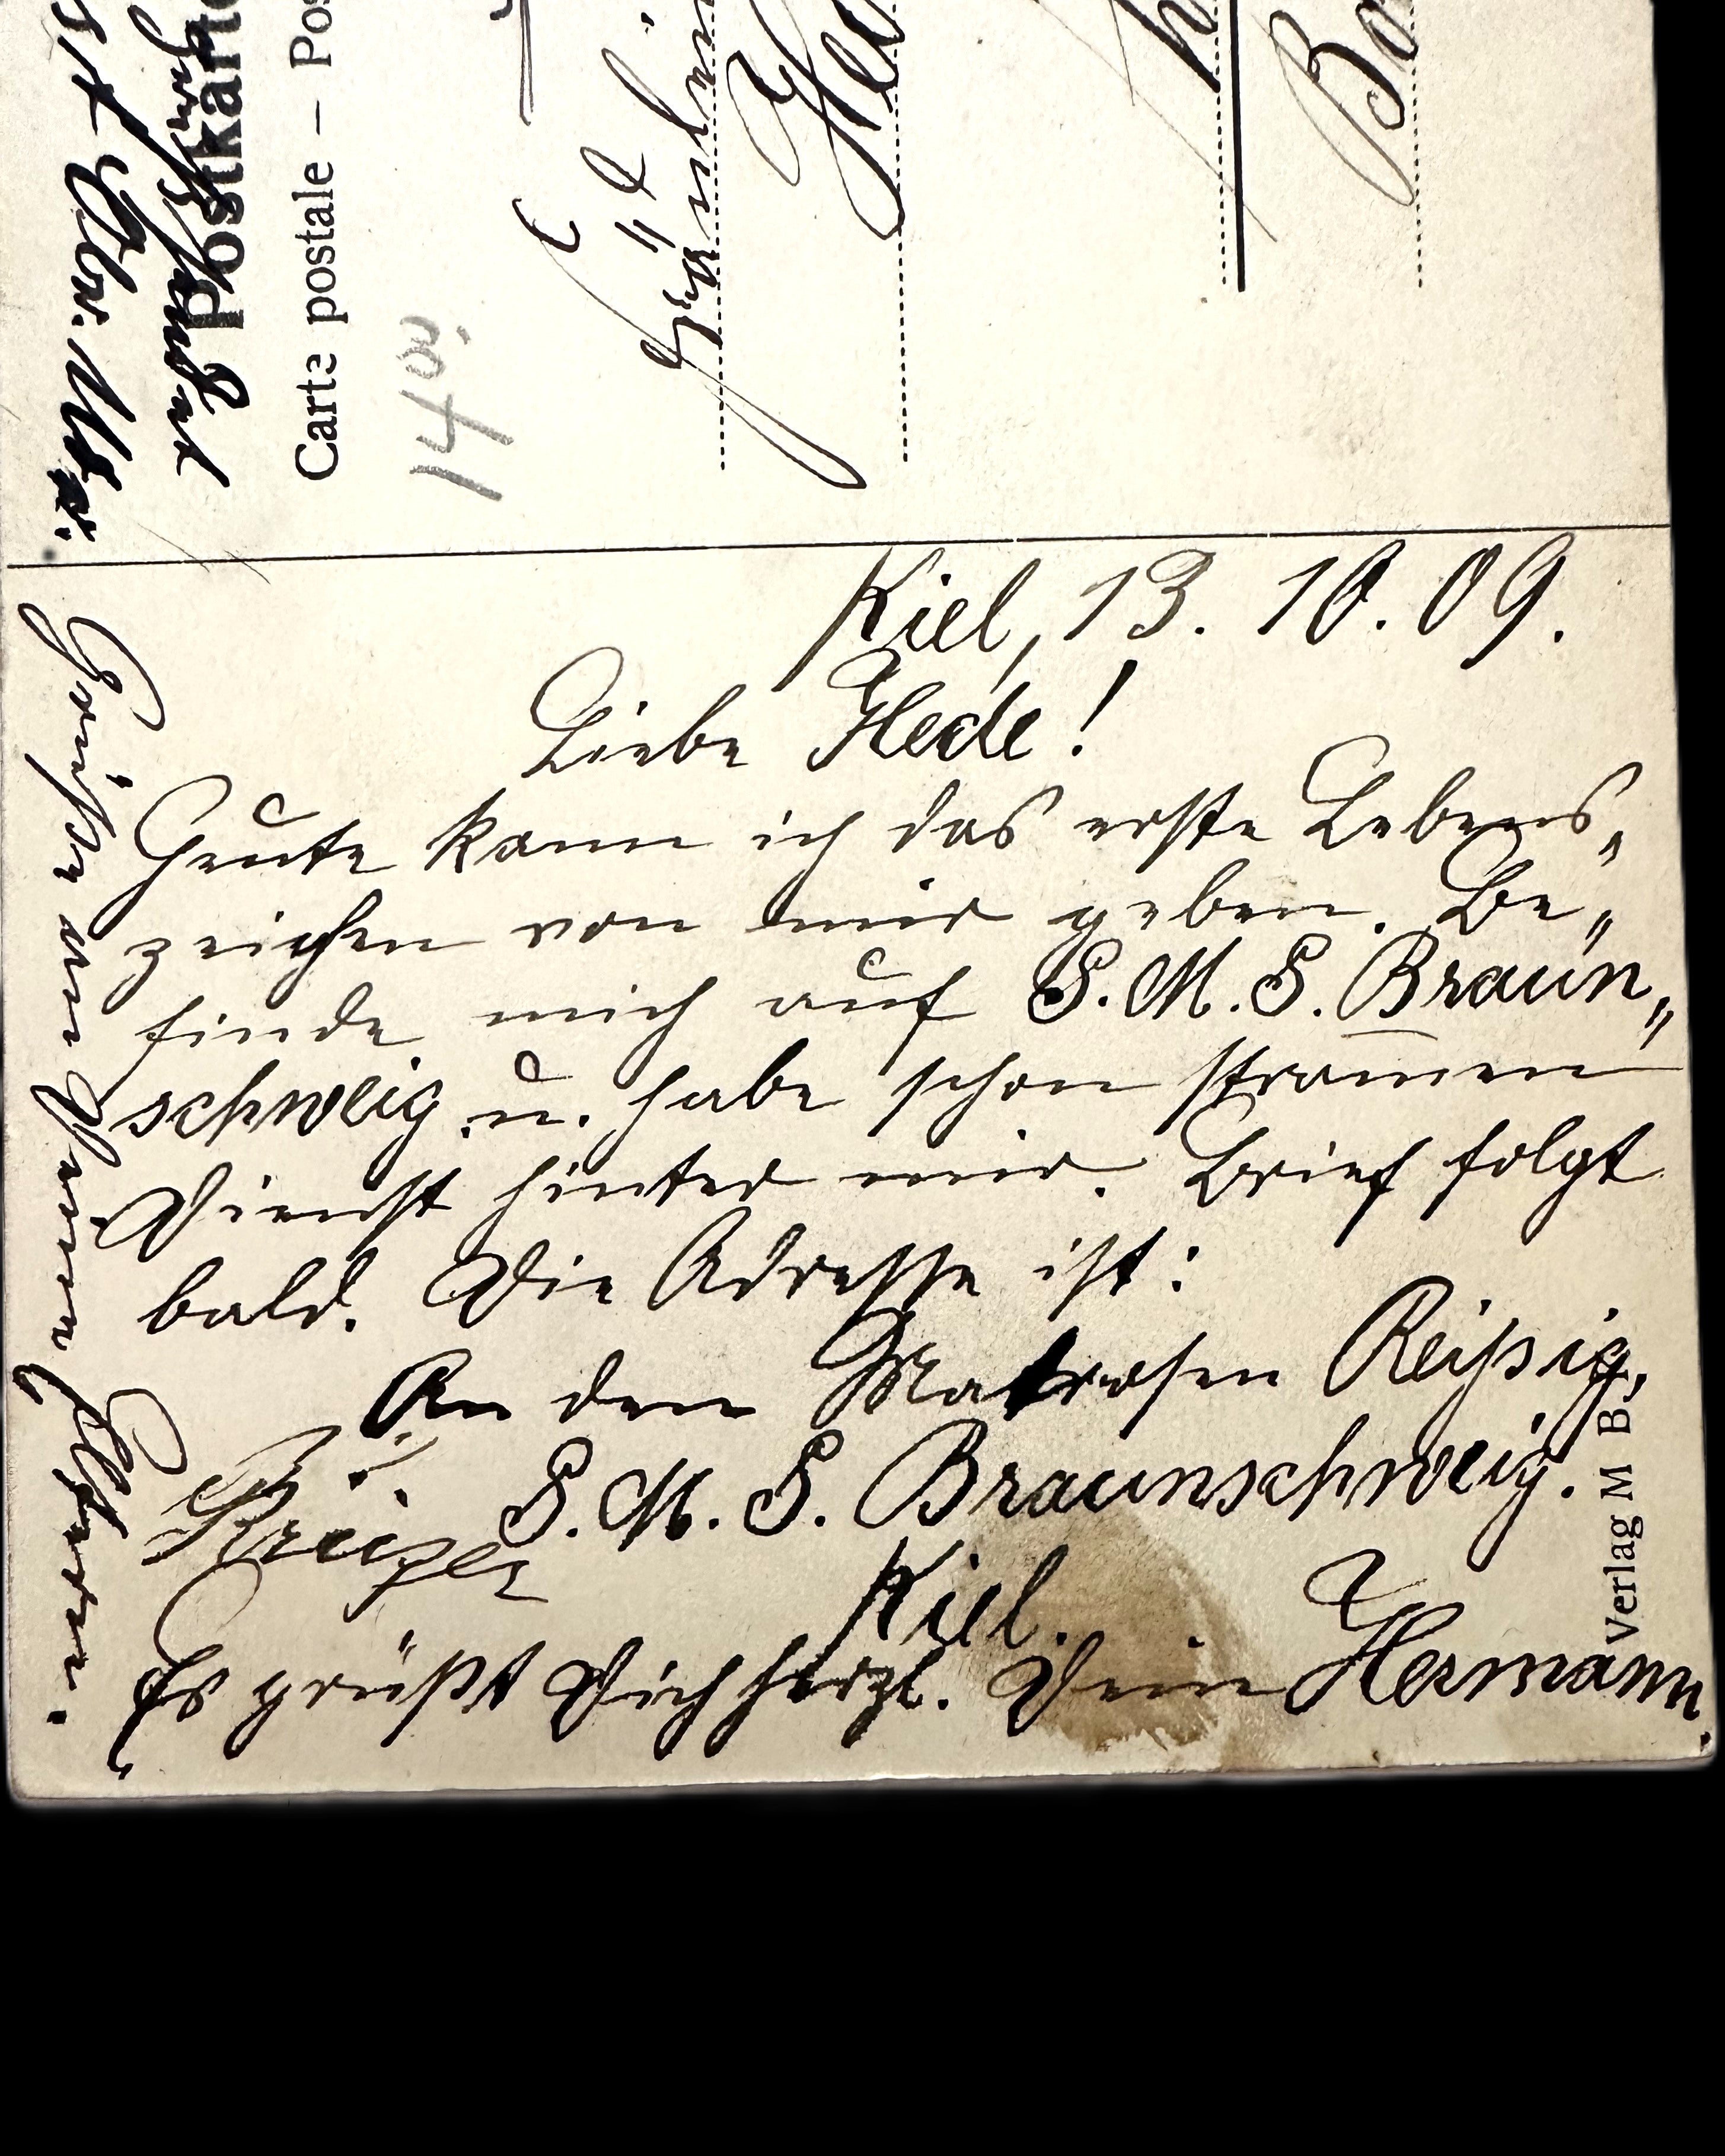 Postkarte
Carte postale – Pos
140.
Fräulein
Kiel, 13. 10. 09.
Liebe Hede!
Heute kann ich das erste Lebens„
zeichen von mir geben. Be„
finde mich auf S. M. S. Braun„
schweig u. habe schon strammen
Dienst hinter mir. Brief folgt
bald. Die Adresse ist:
An den Matrosen Reißig,
S. M. S. Braunschweig.
Kiel.
Es grüßt Dich herzl. Dein Hermann.
Grüße an Deine Eltern.
Verlag M B.